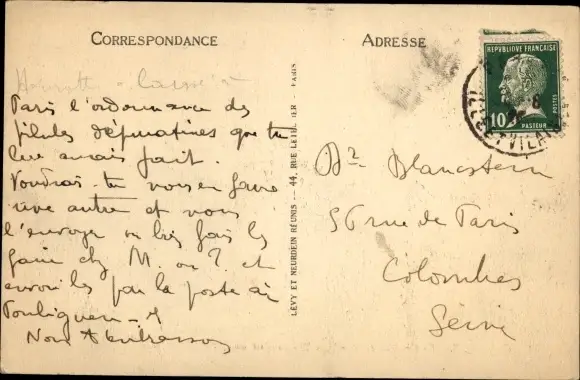 CORRESPONDANCE
ADRESSE
Paris l'ordonnance des
pilules que tu
lui avais fait.
Voudrais-tu nous en faire
une autre et nous
l'envoyer ou bien fais les
faire chez M. ou ? et
envoie les par la poste à
Pouliguen
Nous t'embrassons
LÉVY ET NEURDEIN RÉUNIS — 44, RUE LETELLIER — PARIS
RÉPUBLIQUE FRANÇAISE
POSTES
10
PASTEUR
Dr Blancstern
56 rue de Paris
Colombes
Seine